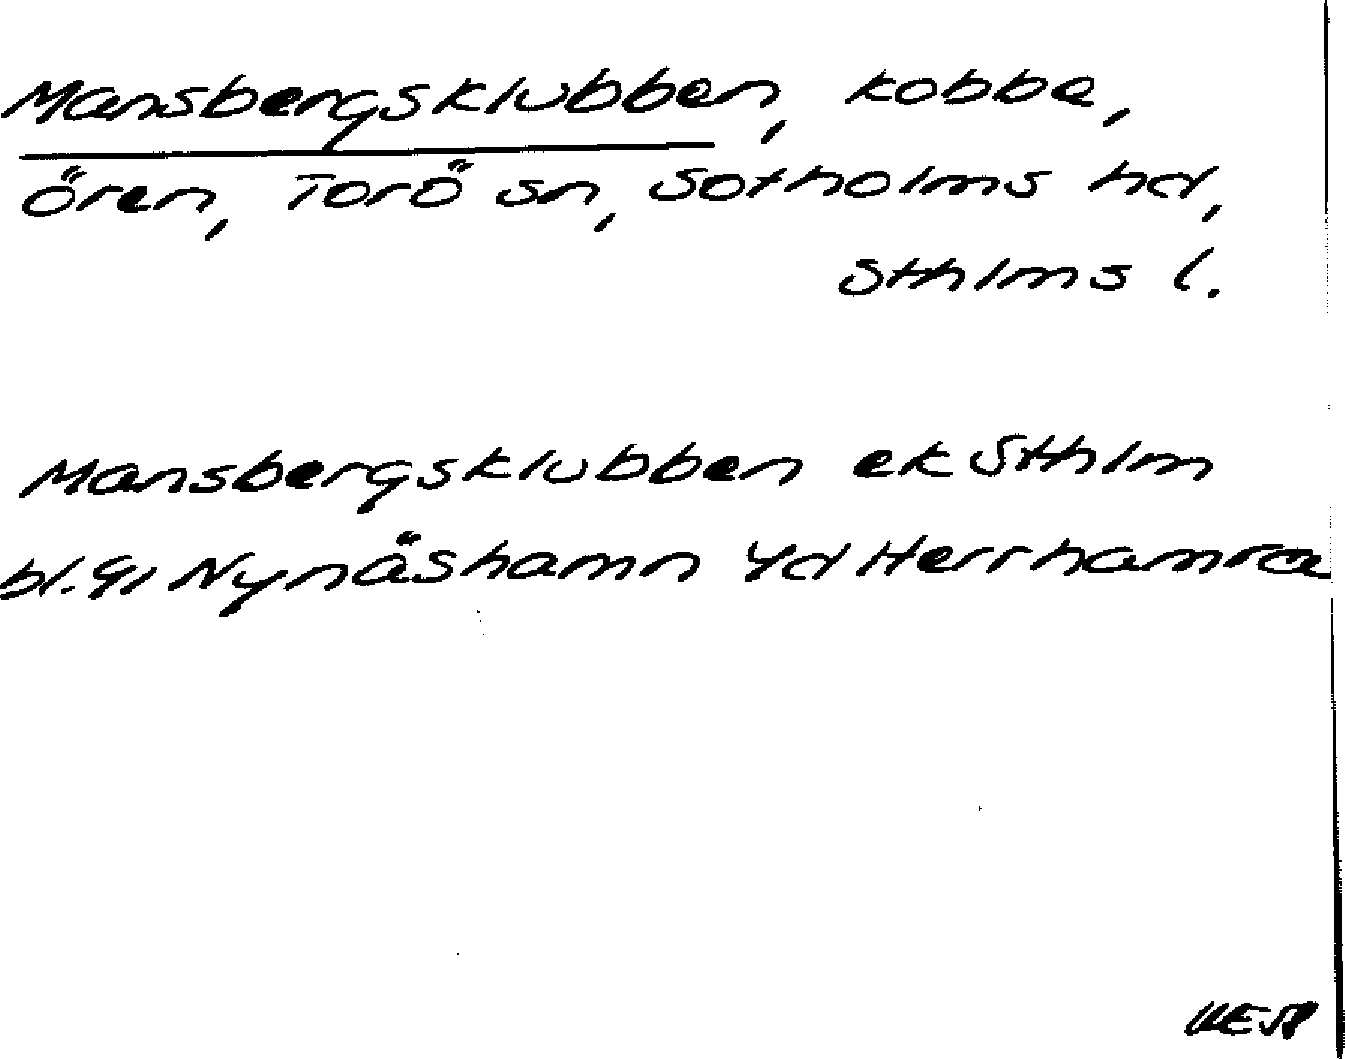 Mansbergsklubben, kobbe,
Ören, Torö sn, Sotholms hd,
Sthlms l.
Mansbergsklubben ek Sthlm
bl. 91 Nynäshamn 4d Herrhamra